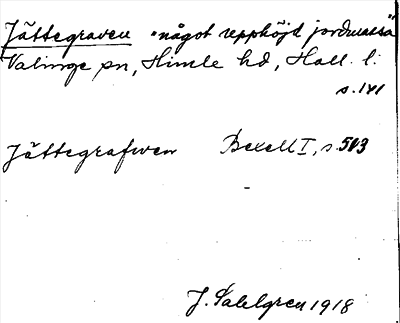 Jättegraven "något upphöjd jordmassa"
Valinge sn, Himle hd, Hall. l.
s. 141
Jättegrafwen Bexell I, s. 503
J. Sahlgren 1918